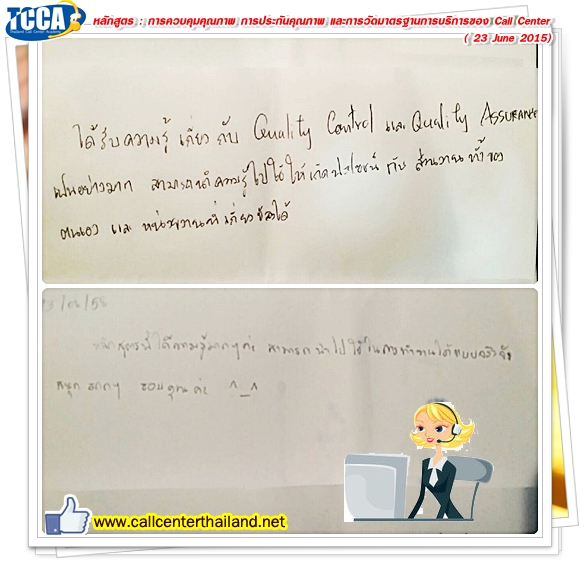 TCCA
Thailand Call Center Academy
หลักสูตร : การควบคุมคุณภาพ การประกันคุณภาพ และการวัดมาตรฐานการบริการของ Call Center
( 23 June 2015)
ได้รับความรู้ เกี่ยวกับ Quality Control และ Quality ASSURANCE
เป็นอย่างมาก สามารถนำความรู้ไปใช้ให้เกิดประโยชน์ กับ ส่วนงาน ของ
ตนเอง และ หน่วยงานที่เกี่ยวข้องได้
/58
หลักสูตรนี้ได้ความรู้มากๆค่ะ สามารถนำไปใช้ในการทำงานได้แบบจริงจัง
สนุก มากๆ ขอบคุณค่ะ ^_^
www.callcenterthailand.net